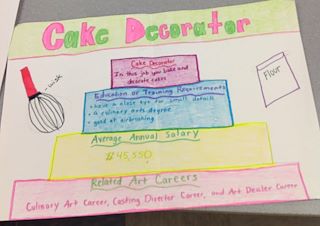 Cake Decorator
Cake Decorator
In this job you bake and
decorate cakes
Education or Training Requirements
• have a close eye for small details
• a culinary arts degree
• good at airbrushing
Average Annual Salary
$45,550
Related Art Careers
Culinary Art Career, Casting Director Career, and Art Dealer Career
Flour